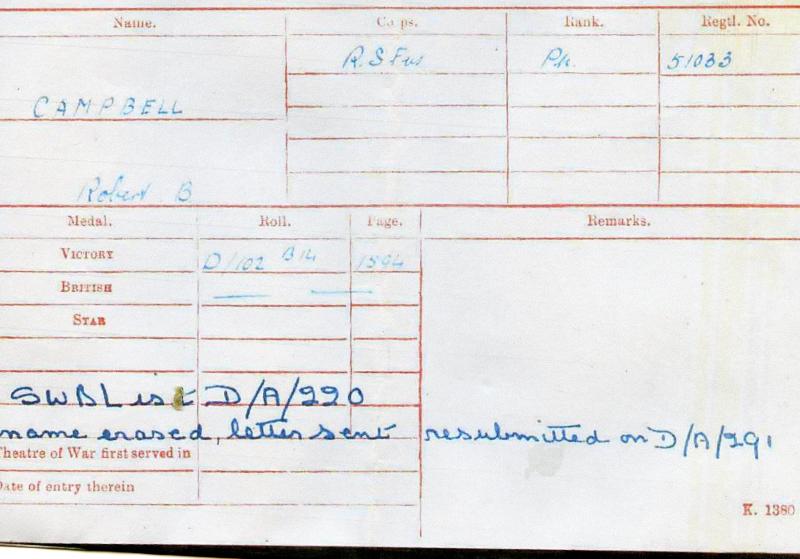 Name. Corps. Rank. Regtl. No.
R.S Fus Pte. 51033
CAMPBELL
Robert B
Medal. Roll. Page. Remarks.
VICTORY D/102 B14 1594
BRITISH
STAR
SWB List D/A/220
name erased, letter sent resubmitted on D/A/291
Theatre of War first served in
Date of entry therein
K. 1380